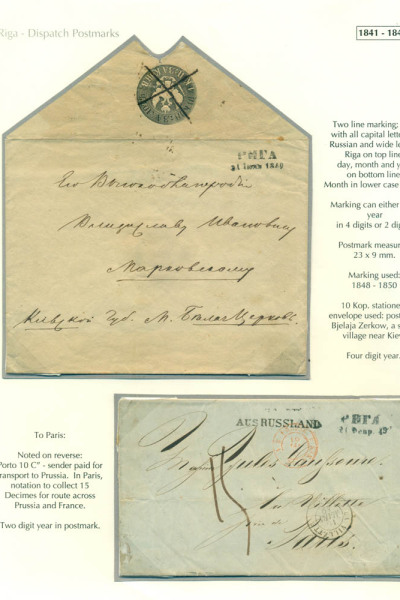 Riga - Dispatch Postmarks
1841 - 184
Two line marking:
with all capital lette
Russian and wide le
Riga on top line
day, month and y
on bottom line
Month in lower case
Marking can either
year
in 4 digits or 2 dig
Postmark measur
23 x 9 mm.
Marking used:
1848 - 1850
10 Kop. statione
envelope used: post
Bjelaja Zerkow, a s
village near Kiev
Four digit year.
РИГА
21 1849
Его Высокоблагородію
Владиславу Ивановичу
Марковскому
Кіевской Губ. М. Бѣлая Церковь.
To Paris:
Noted on reverse:
Porto 10 C" - sender paid for
transport to Prussia. In Paris,
notation to collect 15
Decimes for route across
Prussia and France.
Two digit year in postmark.
AUS RUSSLAND
РИГА
21 Февр. 49
15
Monsieur Jules
La Villette
près de
Paris